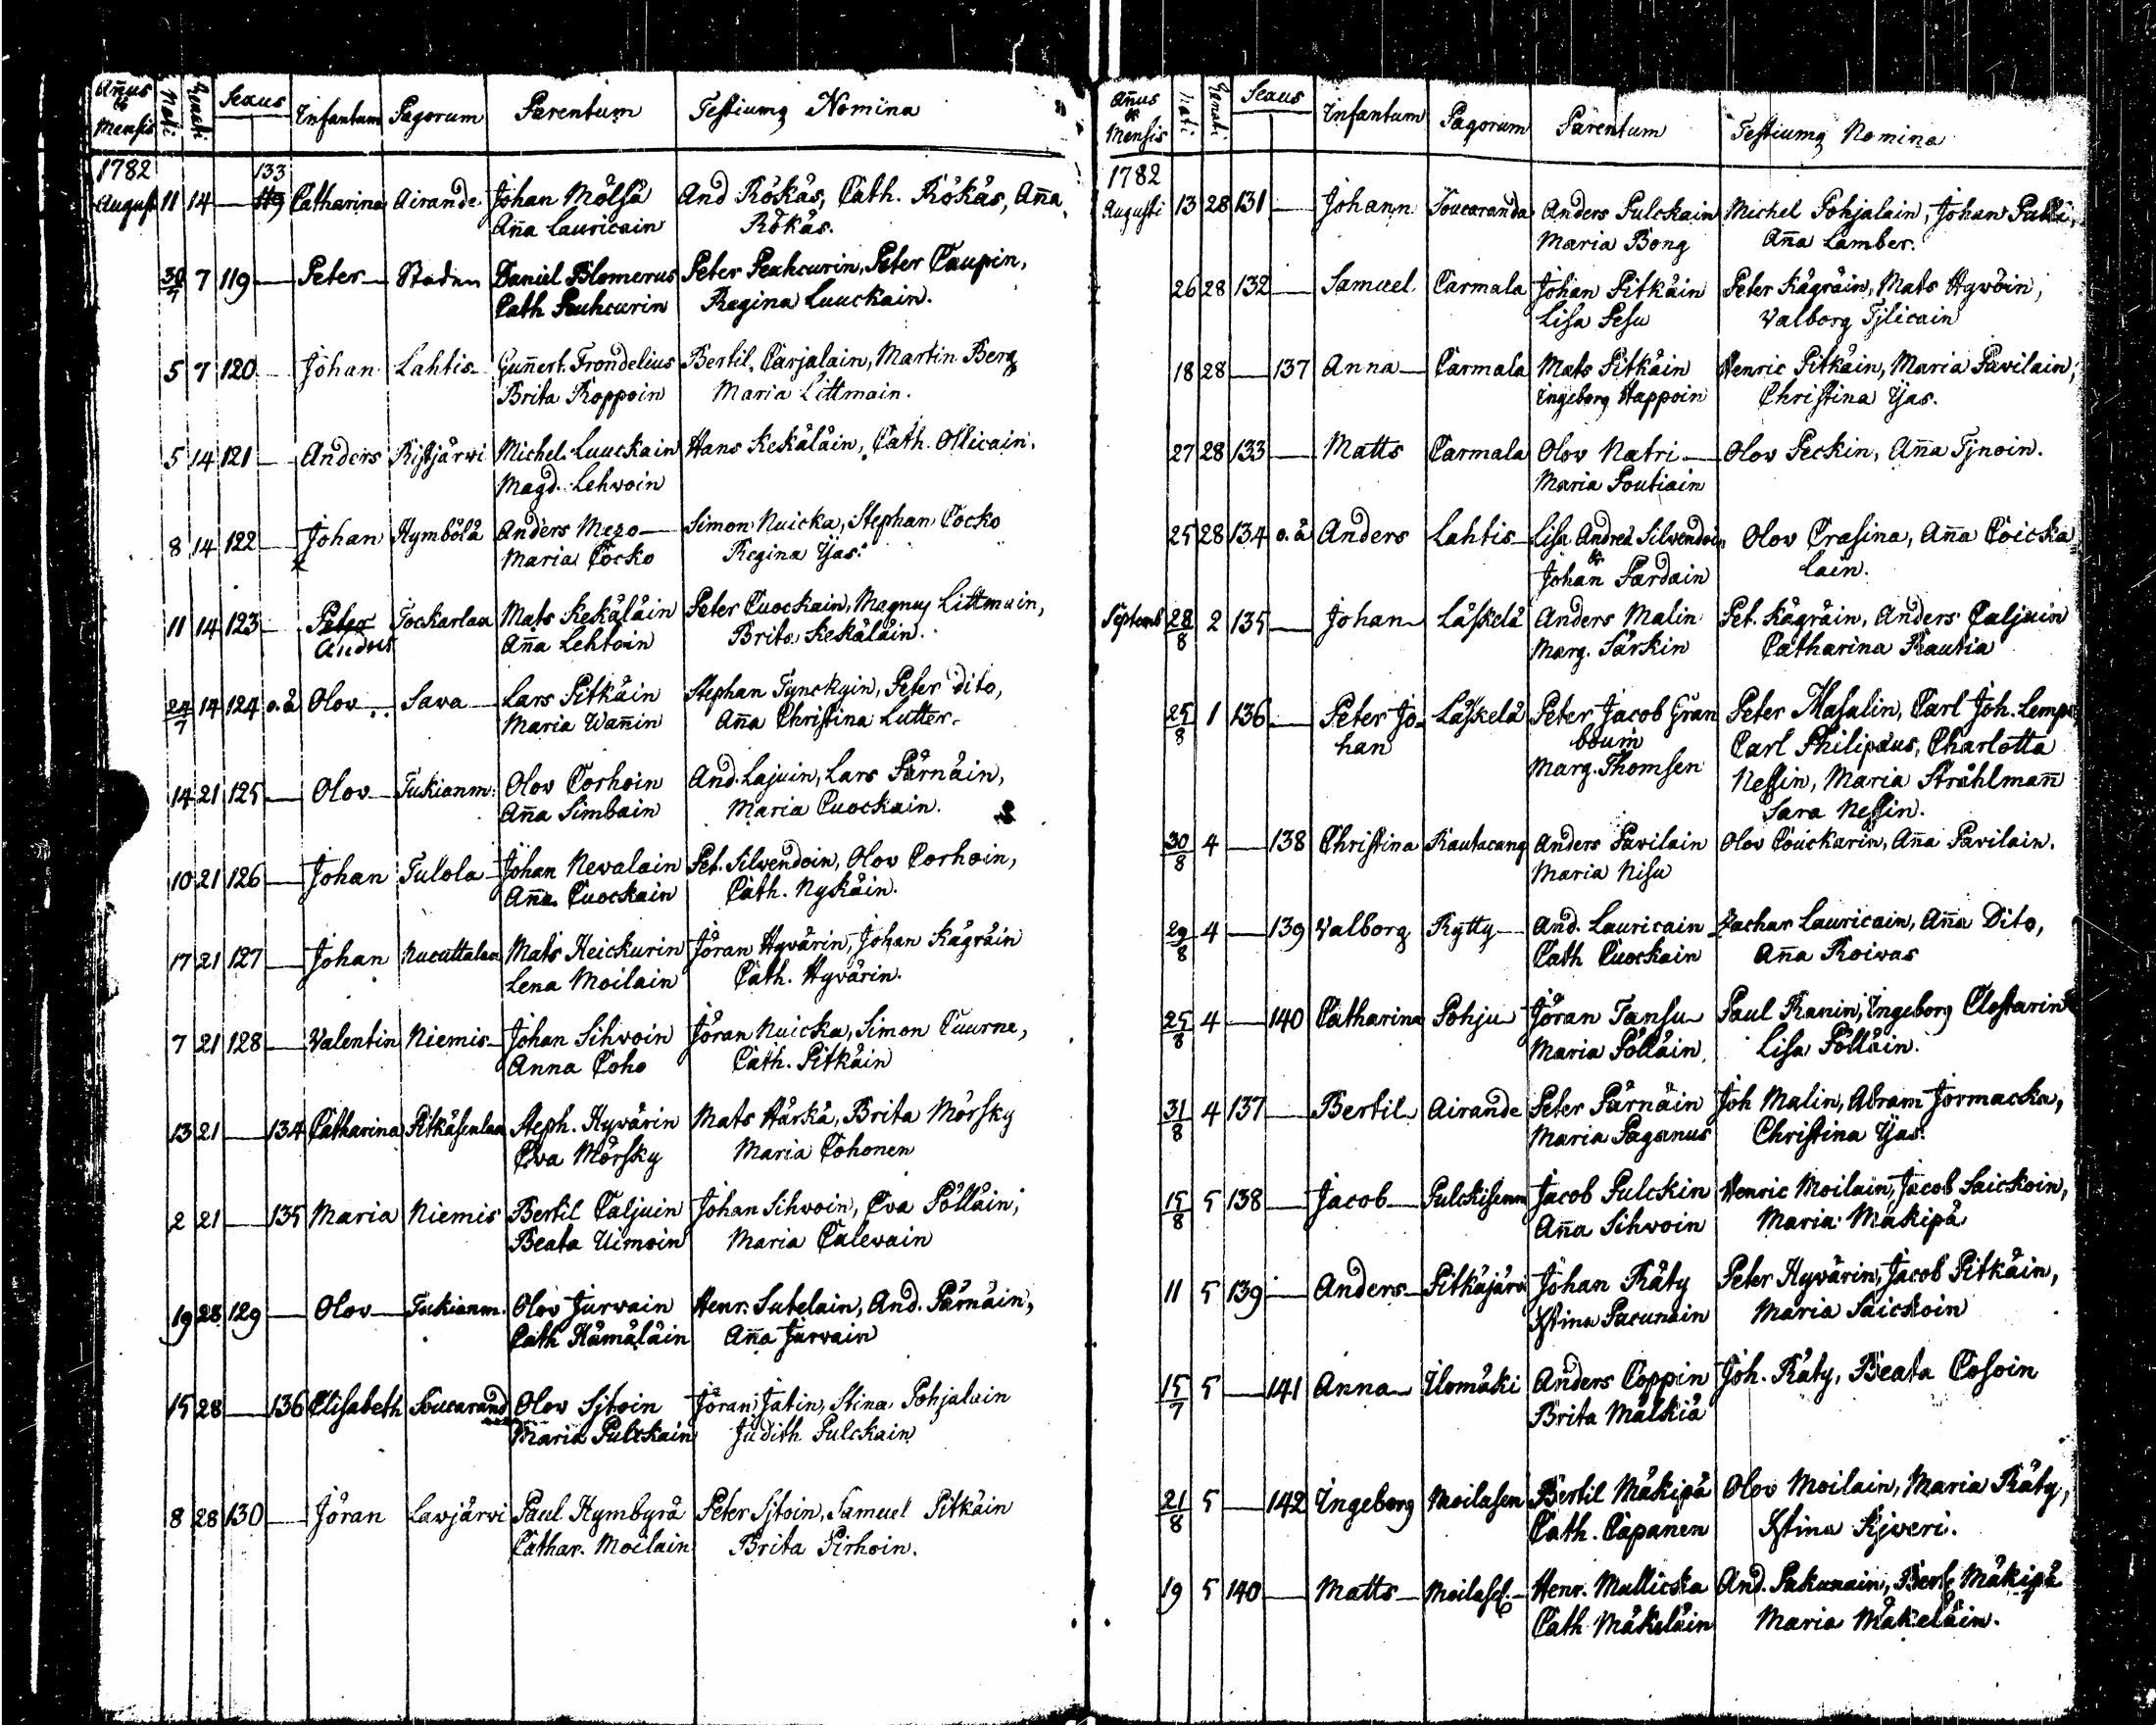 Añus & Mensis Nati Renati Sexus Infantum Pagorum Parentum Testiumq Nomina
1782 133
August 11 14 — 119 Catharina Airande Johan Mölsä And Rökäs, Cath. Rökäs, Aña
Aña Lauricain Rökäs.
30/7 7 119 — Peter — Staden Daniel Blomerus Peter Peuhcurin, Peter Caupin,
Cath Peuhcurin Regina Luuckain.
5 7 120 — Johan Lahtis Guñert Trondelius Bertil Carjalain, Martin Berg
Brita Roppoin Maria Littmain.
5 14 121 — Anders Ristjärwi Michel Luuckain Hans Kekäläin, Cath. Ollicain.
Magd. Lehvoin
8 14 122 — Johan Hymbölä Anders Mezo — Simon Nuicka, Stephan Cocko
Maria Cocko Regina Ijas.
11 14 123 — Peter Tockarlax Mats Kekäläin Peter Cuockain, Magnus Littmain,
Andres Aña Lehtoin Brita Kekäläin.
24/7 14 124 o.ä Olov — Sava — Lars Pitkäin Stephan Tynckyin, Peter dito,
Maria Wañin Aña Christina Lutter.
14 21 125 — Olov — Tukianm. Olov Corhoin And. Lajuin, Lars Pärnäin,
Aña Simbain Maria Cuockain.
10 21 126 — Johan Tulola — Johan Nevalain Pet. Silvendoin, Olov Corhoin,
Aña Cuockain Cath. Nykäin.
17 21 127 — Johan Nucuttalax Mats Heickurin Jöran Hyvärin, Johan Kägräin
Lena Moilain Cath. Hyvärin.
7 21 128 — Valentin Niemis — Johan Sihvoin Jöran Nuicka, Simon Cuurne,
Anna Coho Cath. Pitkäin
13 21 — 134 Catharina Pitkäsenlax Steph. Hyvärin Mats Härkä, Brita Mörsky
Eva Mörsky Maria Cohonen
2 21 — 135 Maria Niemis Bertil Caljuin Johan Sihvoin, Eva Pölläin,
Beata Uimoin Maria Calevain
19 28 129 — Olov — Tukianm. Olov Jurvain Henr. Sutelain, And. Pärnäin,
Cath Hämäläin Aña Jurvain
15 28 — 136 Elisabeth Soucarand Olov Sjtoin Jöran Jätin, Stina Pohjalain
Maria Pulckain Judith Pulckain
8 28 130 — Jöran Lavjärvi Paul Hymbyrä Peter Sjtoin, Samuel Pitkäin
Cathar. Moilain Brita Pirhoin.
Añus & Mensis Nati Renati Sexus Infantum Pagorum Parentum Testiumq Nomina
1782
Augusti 13 28 131 — Johann Soucaranda Anders Pulckain Michel Pohjalain, Johan
Maria Bong Aña Lamber.
26 28 132 — Samuel Carmala Johan Pitkäin Peter Kägräin, Mats Hyvöin,
Lisa Pesu Valborg Tjlicain
18 28 — 137 Anna — Carmala Mats Pitkäin Henric Pitkäin, Maria Pavilain,
Ingeborg Happoin Christina Ijas.
27 28 133 — Matts Carmala Olov Natri — Olov Peckin, Aña Tjnoin.
Maria Poutiain
25 28 134 o.ä Anders Lahtis — Lisa Andred Silvendoin Olov Crasina, Aña Coicka
& Johan Pardain lain.
Septemb 28/8 2 135 — Johan — Läskelä Anders Malin Pet. Kägräin, Anders Caljuin
Marg. Särkin Catharina Rautia
25/8 1 136 — Peter Jo- Läskelä Peter Jacob Gran Peter Masalin, Carl Joh. Lempe
han boum Carl Philipæus, Charlotta
Marg. Thomsen Nessin, Maria Stråhlmañ
Sara Nessin.
30/8 4 — 138 Christina Rautacang Anders Pavilain Olov Couckarin, Aña Pavilain.
Maria Nisu
29/8 4 — 139 Valborg Rytty — And. Lauricain Zachar Lauricain, Aña Dito,
Cath Cuockain Aña Roivas
25/8 4 — 140 Catharina Pohju Jöran Tansu Paul Ranin, Ingeborg Clostarin
Maria Pölläin Lisa Pölläin.
31/8 4 137 — Bertil Airande Peter Pärnäin Joh Malin, Abram Jormacka,
Maria Paganus Christina Ijas.
15/8 5 138 — Jacob — Pulckisenm Jacob Pulckin Henric Moilain, Jacob Saickoin,
Aña Sihvoin Maria Mäkipä
11 5 139 — Anders — Pitkäjärv Johan Räty Peter Hyvärin, Jacob Pitkäin,
Xstina Pacunain Maria Saickoin
15/7 5 — 141 Anna — Ilomäki Anders Coppin Joh. Räty, Beata Cosoin
Brita Mälkiä
21/8 5 — 142 Ingeborg Moilasen Bertil Mäkipä Olov Moilain, Maria Räty,
Cath. Capanen Xstina Kjveri.
19 5 140 — Matts — Moilas Henr. Mullicka And. Pakunain, Bert. Mäkipä
Cath Mäkeläin Maria Mäkeläin.